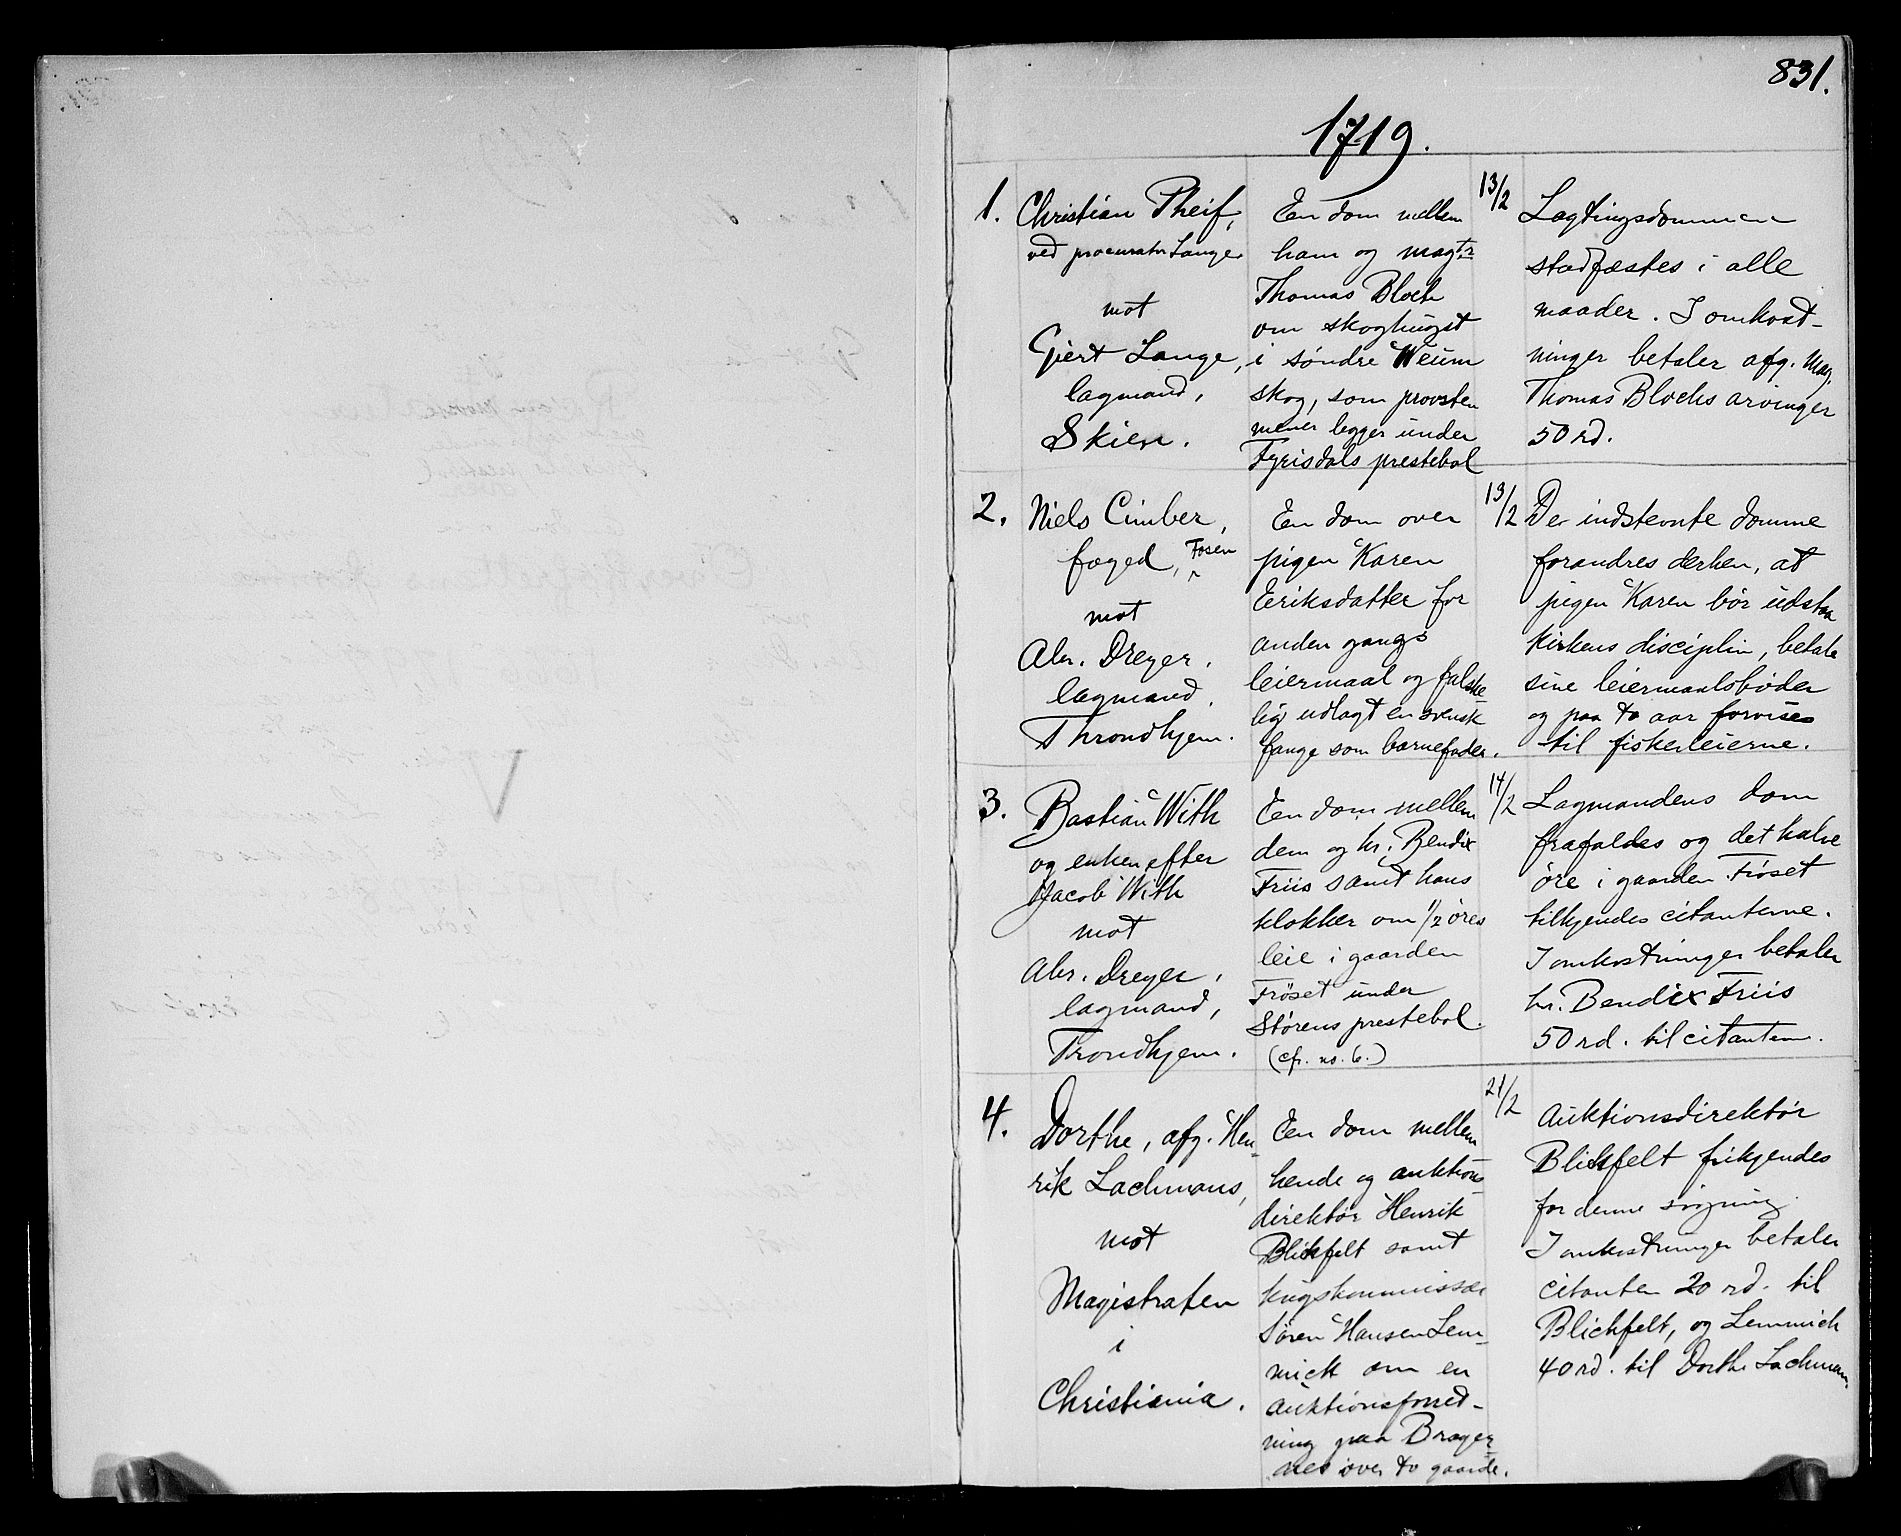 831.
1719.
1. Christian Pheif,
ved procurator Lange
mot
Giert Lange,
lagmand,
Skien.
En dom mellem
ham og magtr
Thomas Bloch
om skoghugst
i søndre Weum
skog, som provsten
mener legger under
Fyrisdals prestebol
13/2
Lagtingsdommen
stadfæstes i alle
maader. I omkost-
ninger betaler afg. Mag.
Thomas Blochs arvinger
50 rd.
2. Niels Cimber,
foged, Fosen
mot
Abr. Dreyer,
lagmand,
Throndhjem.
En dom over
pigen Karen
Eriksdatter for
anden gangs
leiermaal og falske
lig udlagt en svensk
fange som barnefader.
13/2
De indstevnte domme
forandres derhen, at
pigen Karen bør udstaa
kirkens disciplin, betale
sine leiermaalsbøder
og paa to aar forvises
til fiskerleierne.
3. Bastian With
og enken efter
Jacob With
mot
Abr. Dreyer,
lagmand,
Trondhjem.
En dom mellem
dem og hr. Bendix
Friis samt hans
klokker om 1/2 øres
leie i gaarden
Frøset under
Størens prestebol.
(cfr. no. 6.)
14/2
Lagmandens dom
frafaldes og det halve
øre i gaarden Frøset
tilkjendes citanterne.
I omkostninger betaler
hr. Bendix Friis
50 rd. til citanten.
4. Dorthe, afg. Hen-
rik Lachmans,
mot
Magistraten
i
Christiania.
En dom mellem
hende og auktions-
direktør Henrik
Blichfelt samt
krigskommissær
Søren Hansen Lem-
mick om en
auktionsforret-
ning paa Brager-
nes over to gaarde.
21/2
Auktionsdirektør
Blichfelt frikjendes
for denne søgning.
I omkostninger betaler
citanten 20 rd. til
Blichfelt, og Lemmich
40 rd. til Dorthe Lachmans.